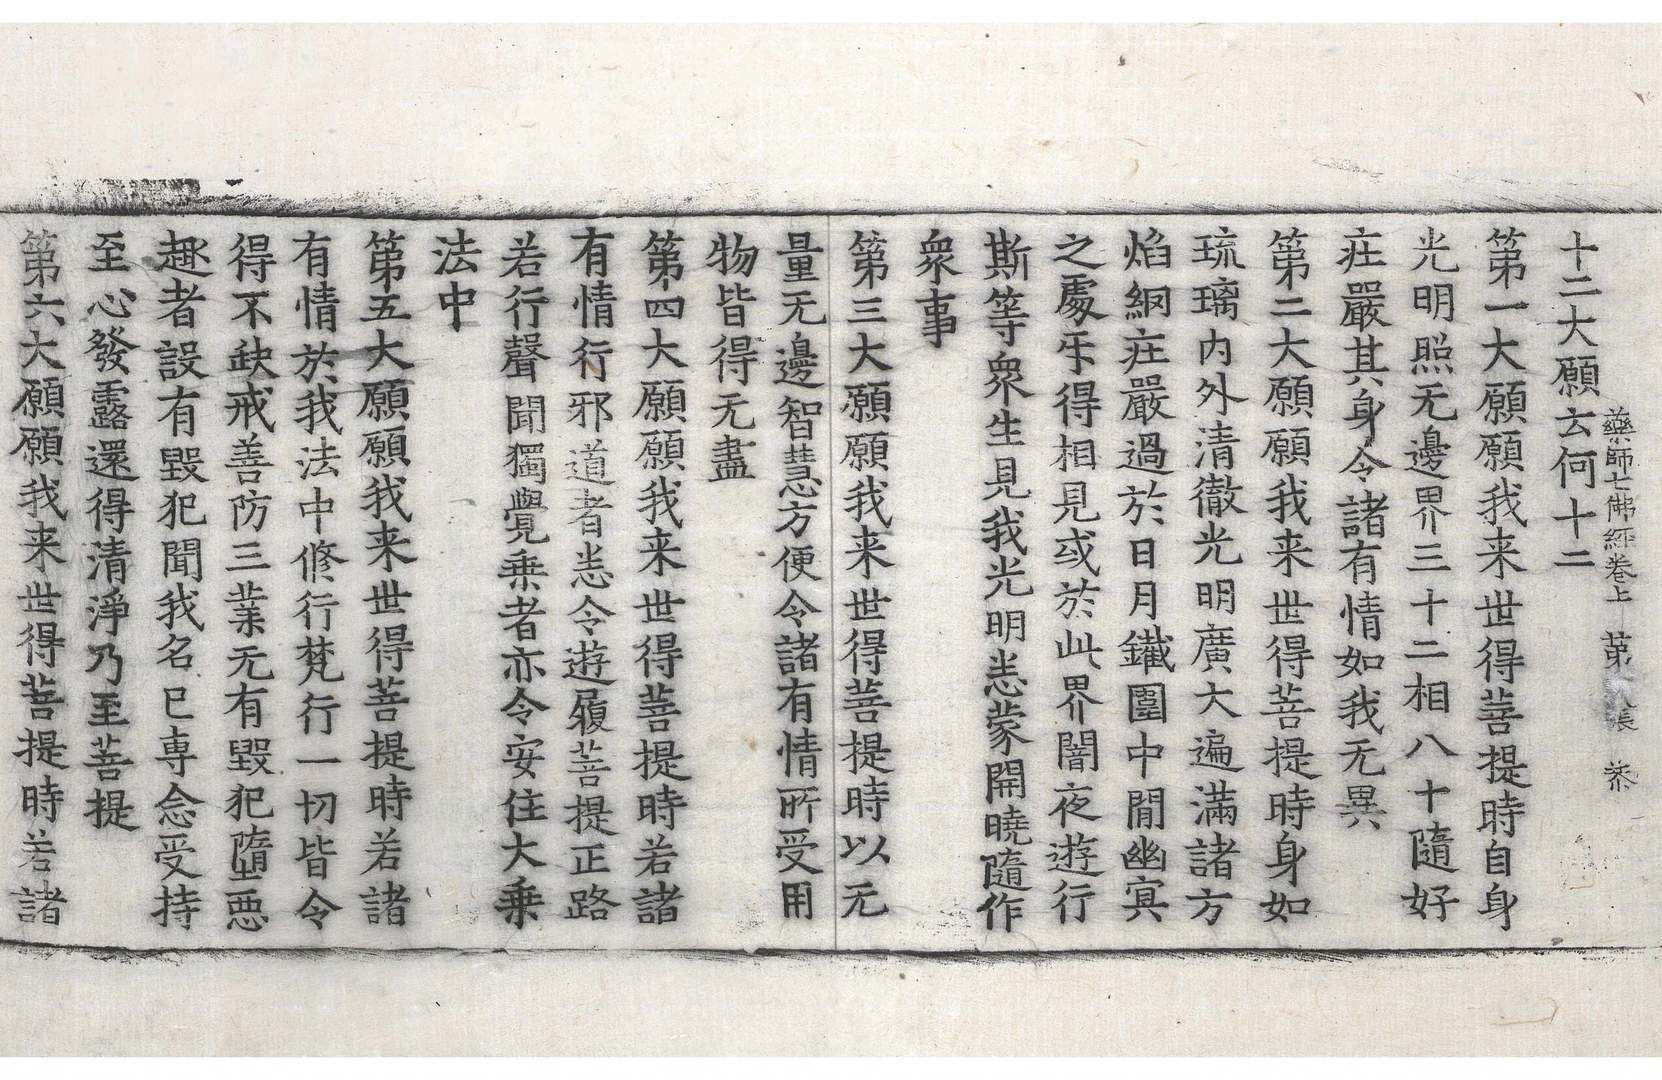 藥師七佛經卷上 第 張 柒
十二大願云何十二
第一大願願我来世得菩提時自身
光明照无邊界三十二相八十隨好
疘嚴其身令諸有情如我无異
第二大願願我来世得菩提時身如
琉璃内外清徹光明廣大遍滿諸方
焰網疘嚴過於日月鐵圍中間幽冥
之處㸦得相見或於此界闇夜遊行
斯等衆生見我光明悉蒙開曉隨作
衆事
第三大願願我来世得菩提時以无
量无邊智慧方便令諸有情所受用
物皆得无盡
第四大願願我来世得菩提時若諸
有情行邪道者悉令遊履菩提正路
若行聲聞獨覺乗者亦令安住大乗
法中
第五大願願我来世得菩提時若諸
有情於我法中修行梵行一切皆令
得不缺戒善防三業无有毀犯墮惡
趣者設有毀犯聞我名已専念受持
至心發露還得清淨乃至菩提
第六大願願我来世得菩提時若諸